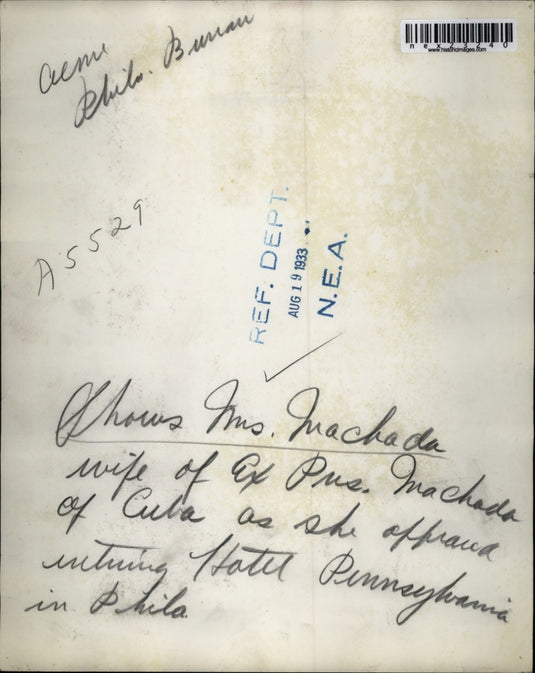 Acme
Phila. Bureau
www.historicimages.com
A5529
REF. DEPT.
AUG 19 1933
N.E.A.
Shows Mrs. Machada
wife of Ex Pres. Machada
of Cuba as she appeared
entering Hotel Pennsylvania
in Phila.